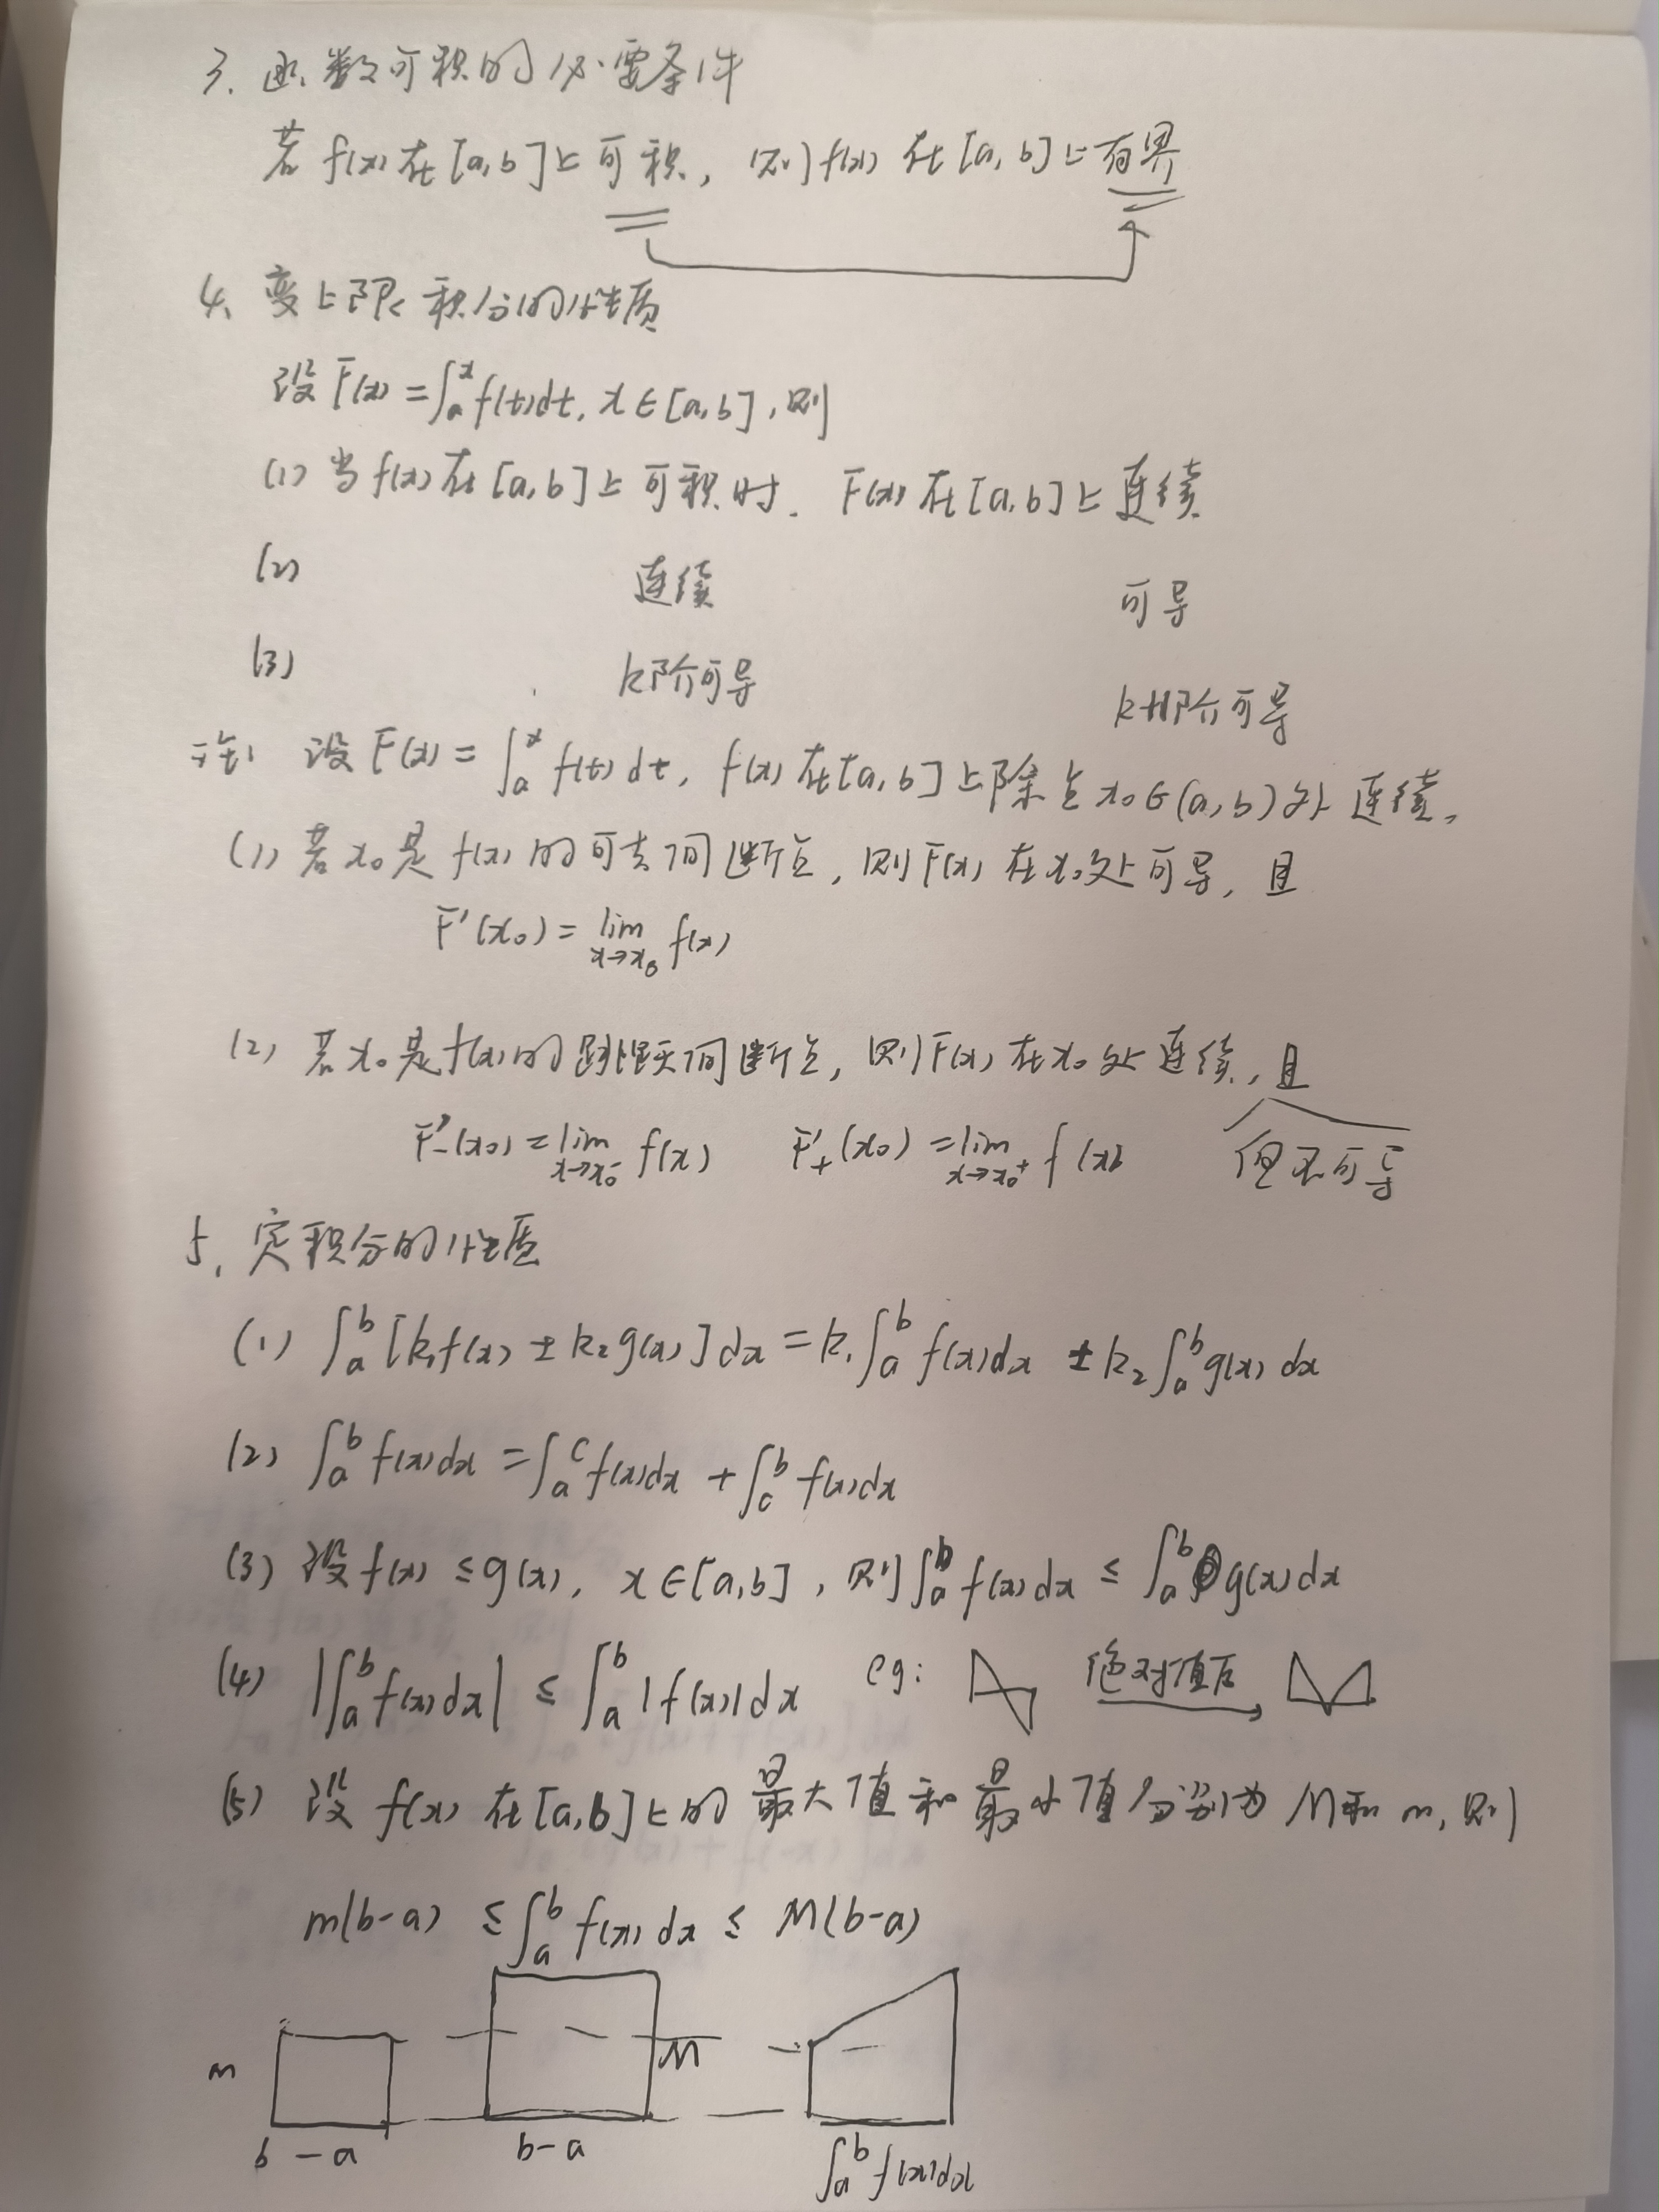 3. 函数可积的必要条件
若 f(x) 在 [a,b] 上可积, 则 f(x) 在 [a,b] 上有界
4. 变上限积分的性质
设 F(x) = ∫_a^x f(t)dt, x∈[a,b], 则
(1) 当 f(x) 在 [a,b] 上可积时. F(x) 在 [a,b] 上连续
(2) 连续 可导
(3) k阶可导 k+1阶可导
注: 设 F(x) = ∫_a^x f(t)dt, f(x) 在 [a,b] 上除点 x₀∈(a,b) 外连续,
(1) 若 x₀ 是 f(x) 的可去间断点, 则 F(x) 在 x₀ 处可导, 且
F'(x₀) = lim_{x→x₀} f(x)
(2) 若 x₀ 是 f(x) 的跳跃间断点, 则 F(x) 在 x₀ 处连续, 且
F'₋(x₀) = lim_{x→x₀⁻} f(x) F'₊(x₀) = lim_{x→x₀⁺} f(x) 但不可导
5. 定积分的性质
(1) ∫_a^b [k₁f(x) ± k₂g(x)]dx = k₁∫_a^b f(x)dx ± k₂∫_a^b g(x)dx
(2) ∫_a^b f(x)dx = ∫_a^c f(x)dx + ∫_c^b f(x)dx
(3) 设 f(x) ≤ g(x), x∈[a,b], 则 ∫_a^b f(x)dx ≤ ∫_a^b g(x)dx
(4) |∫_a^b f(x)dx| ≤ ∫_a^b |f(x)|dx eg: 绝对值后
(5) 设 f(x) 在 [a,b] 上的最大值和最小值分别为 M和 m, 则
m(b-a) ≤ ∫_a^b f(x)dx ≤ M(b-a)
m M
b-a b-a ∫_a^b f(x)dx